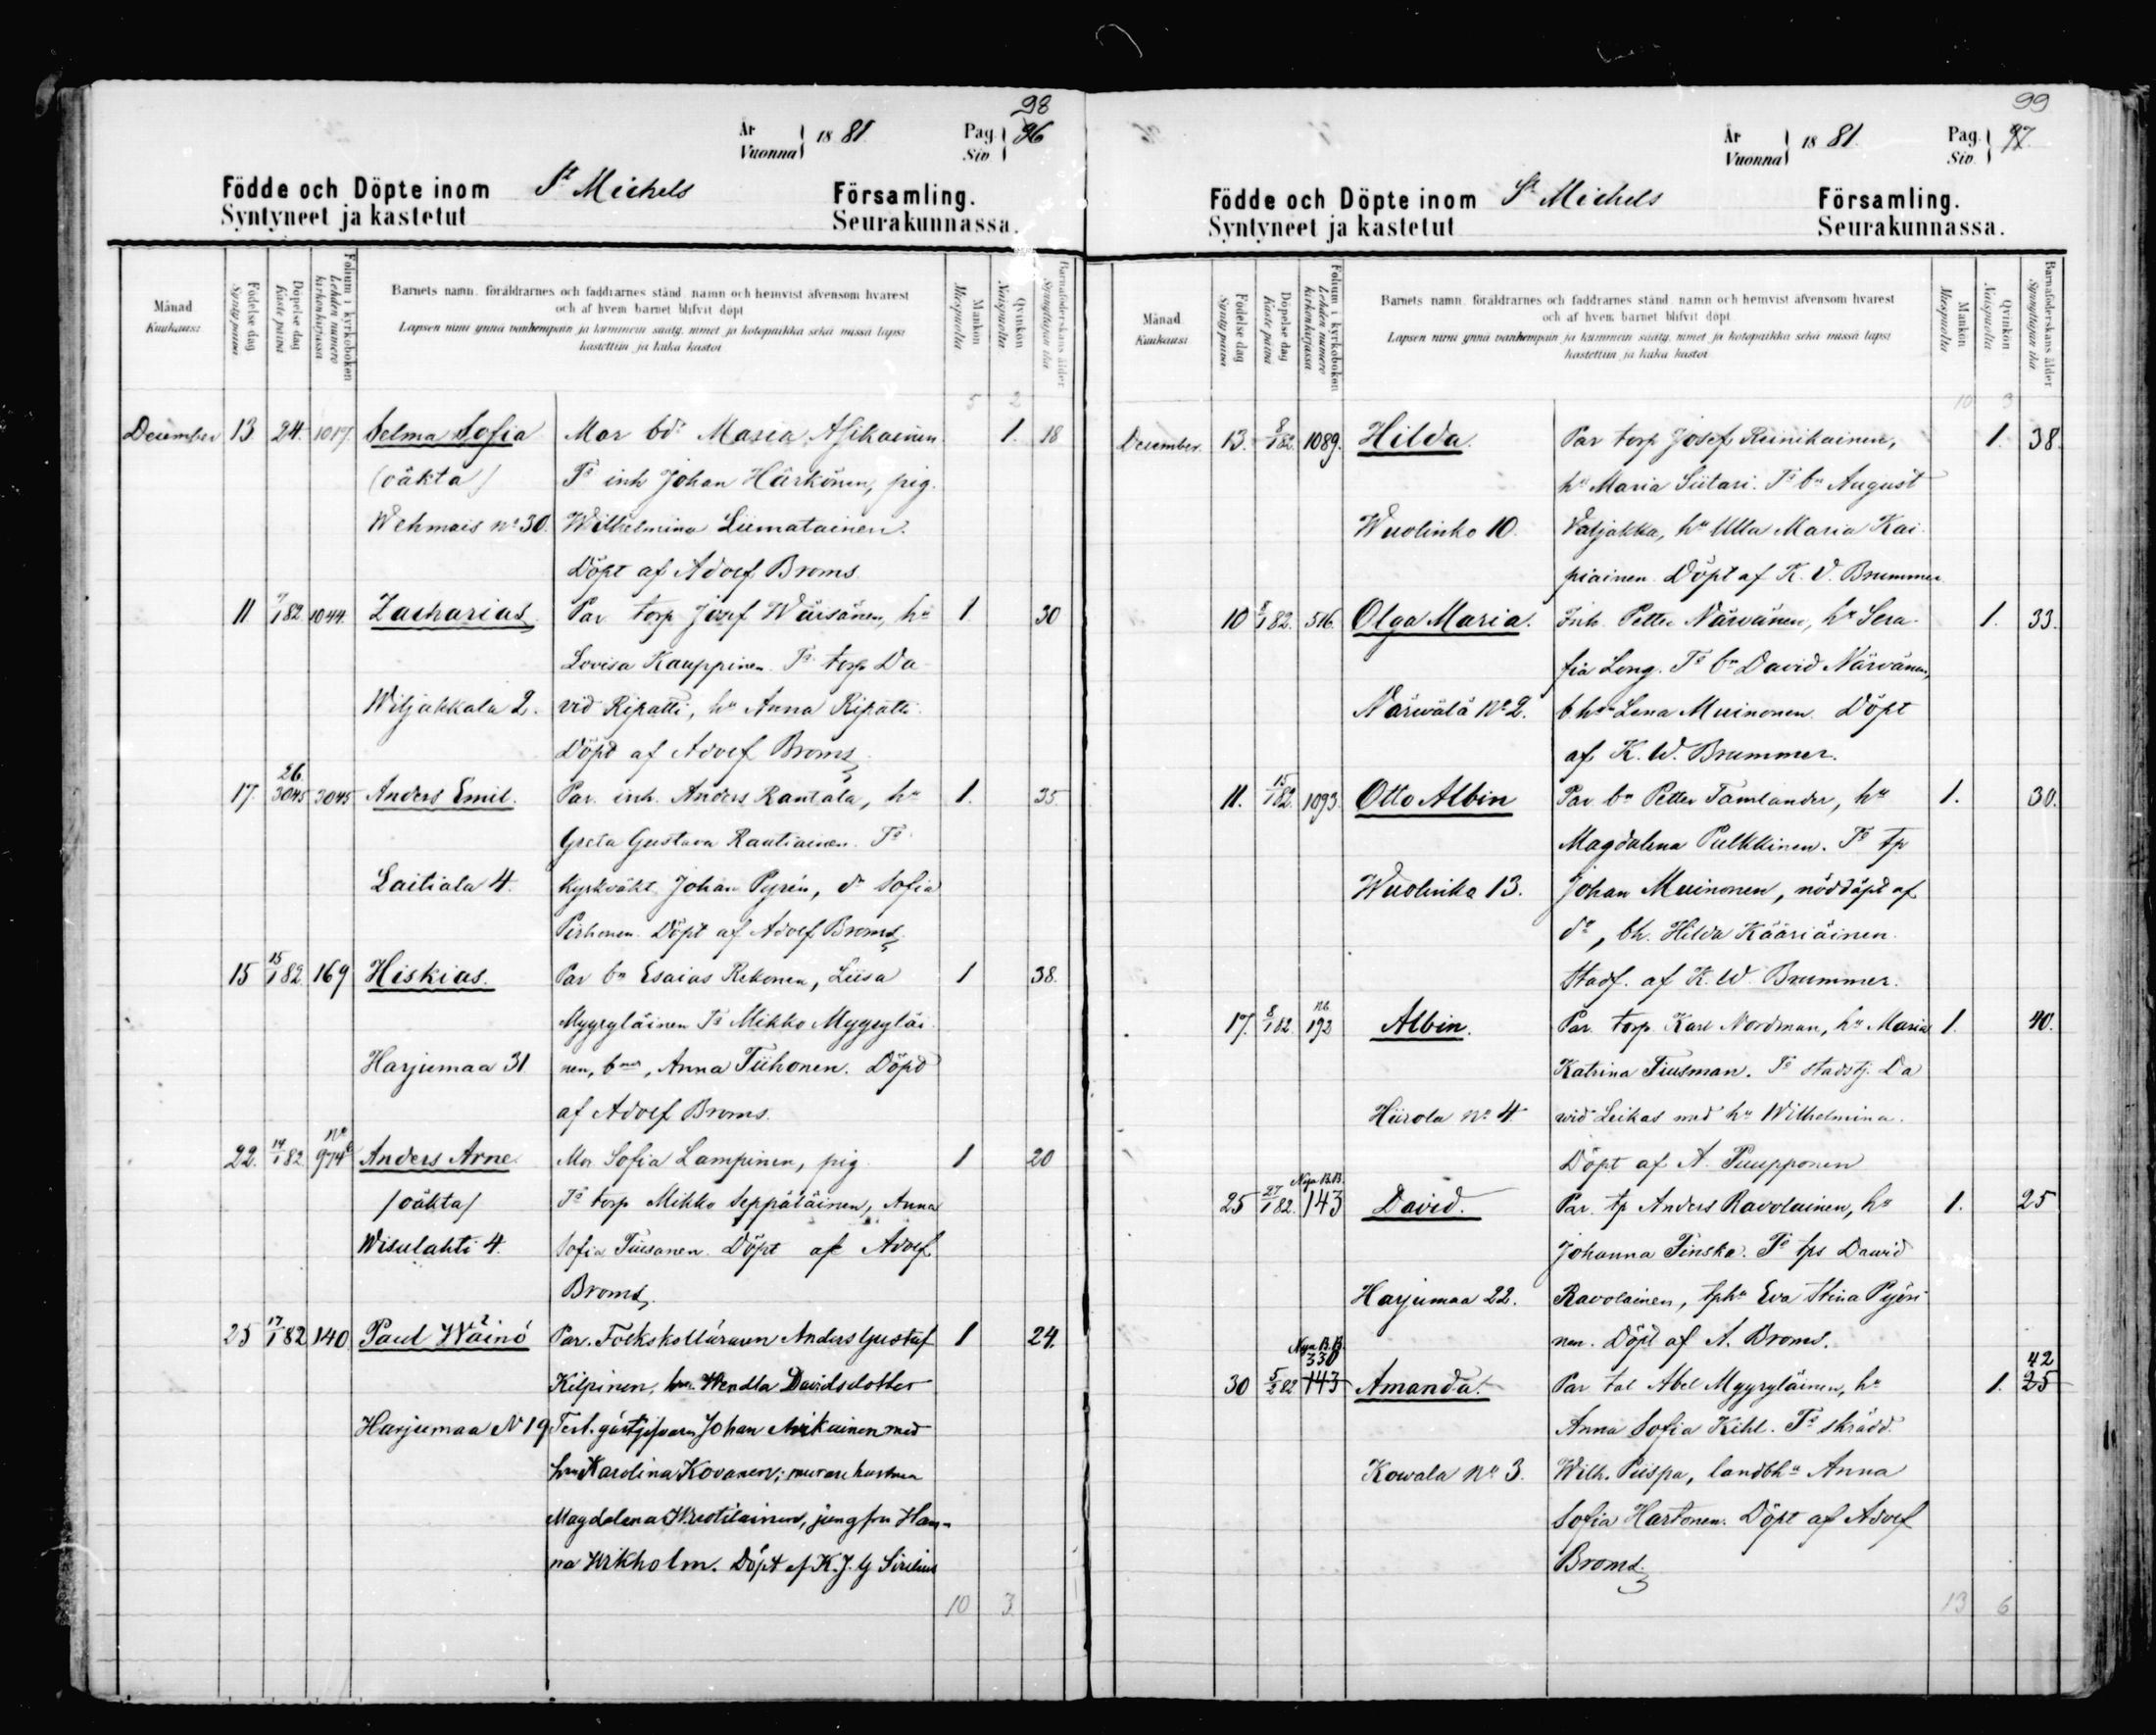 98
År
Vuonna 1881. Pag. Siv. 96
Födde och Döpte inom St Michels Församling.
Syntyneet ja kastetut Seurakunnassa.
Månad
Kuukausi
Födelse dag
Synty päivä
Döpelse dag
Kaste päivä
Folium i kyrkoboken
Lehden numero kirkonkirjassa
Barnets namn, föräldrarnes och faddrarnes stånd, namn och hemvist äfvensom hvarest
och af hvem barnet blifvit döpt
Lapsen nimi ynnä vanhempain ja kummein sääty, nimet ja kotopaikka sekä missä lapsi
kastettiin ja kuka kastoi
Mankön
Miespuolia
Qvinkön
Naispuolia
Barnaföderskans ålder
Synnyttäjän ikä
5 2
December 13 24. 1017. Selma Sofia Mor bdr Maria Asikainen 1. 18
(oäkta) Ts inh Johan Härkönen, pig.
Wehmais No 30. Wilhelmina Liimatainen.
Döpt af Adolf Broms
11 7/1 82. 1044. Zacharias Par torp Josef Wäisänen, hu 1. 30
Lovisa Kauppinen. Ts torp Da
Wiljakkala 2. vid Ripatti, hu Anna Ripatti.
Döpt af Adolf Broms
26
17. 3045 3045 Anders Emil. Par. inh. Anders Rantala, hu 1. 35
Greta Gustava Rautiainen. Ts
Laitiala 4. kyrkväkt. Johan Pyrén, dr Sofia
Pirhonen. Döpt af Adolf Broms.
15 15/1 82. 169 Hiskias. Par bn Esaias Rekonen, Liisa 1 38.
Myyryläinen Ts Mikko Myyryläi
Harjumaa 31 nen, bmr, Anna Tiihonen. Döpt
af Adolf Broms.
22. 14/1 82. 974 Anders Arne Mor Sofia Lampinen, pig. 1 20
(oäkta) Ts torp Mikko Seppäläinen, Anna
Wisulahti 4. Sofia Tiusanen. Döpt af Adolf
Broms
25 17/1 82 140 Paul Wäinö Par. Folkskolläraren Anders Gustaf 1 24.
Kilpinen, hu. Wendla Davidsdotter
Harjumaa N 19 Test. gästgifvaren Johan Avikainen med
hu Karolina Kovanen; murare hustrun
Magdalena Wuotilainen, jungfru Han-
na Wikholm. Döpt af K. J. G Sirelius
10 3
99
År
Vuonna 1881. Pag. Siv. 97.
Födde och Döpte inom St Michels Församling.
Syntyneet ja kastetut Seurakunnassa.
Månad
Kuukausi
Födelse dag
Synty päivä
Döpelse dag
Kaste päivä
Folium i kyrkoboken
Lehden numero kirkonkirjassa
Barnets namn, föräldrarnes och faddrarnes stånd, namn och hemvist äfvensom hvarest
och af hvem barnet blifvit döpt
Lapsen nimi ynnä vanhempain ja kummein sääty, nimet ja kotopaikka sekä missä lapsi
kastettiin ja kuka kastoi
Mankön
Miespuolia
Qvinkön
Naispuolia
Barnaföderskans ålder
Synnyttäjän ikä
10 3
December. 13. 8/1 82. 1089. Hilda. Par torp Josef Reinikainen, 1. 38.
hu Maria Siitari. Ts bn August
Wuolinko 10. Valjakka, hu Ulla Maria Kai
piainen. Döpt af K. V. Brummer
10 8/1 82. 516. Olga Maria. Inh. Petter Närvänen, hu Sera- 1. 33.
fia Long. Ts bn David Närvänen,
Närvälä No 2. bhu Lena Muinonen. Döpt
af K. W. Brummer.
11. 15/1 82. 1093. Otto Albin Par bn Petter Tamlander, hu 1. 30.
Magdalena Pulkkinen. Ts tp
Wuolinko 13. Johan Muinonen, nöddöpt af
do, bh. Hilda Kääriäinen.
Stadf. af K. W. Brummer.
17. 8/1 82. nb. 192 Albin. Par. torp. Karl Nordman, hu Maria 1. 40.
Katrina Tiusman. Ts stadstj. Da
Hiirola No 4. vid Leikas med hu Wilhelmina.
Döpt af A. Puupponen
Nya B.B.
25 27/1 82. 143 David. Par. tp Anders Ravolainen, hu 1. 25
Johanna Pinska. Ts tps David
Harjumaa 22. Ravolainen, tphu Eva Stina Pyöri
nen. Döpt af A. Broms.
Nya B.B.
330 42
30 5/2 82 143 Amanda. Par tal Abel Myyryläinen, hu 1. 25
Anna Sofia Kihl. Ts skrädd.
Kowala No 3. Wilh. Piispa, landbhu Anna
Sofia Hartonen. Döpt af Adolf
Broms.
13 6